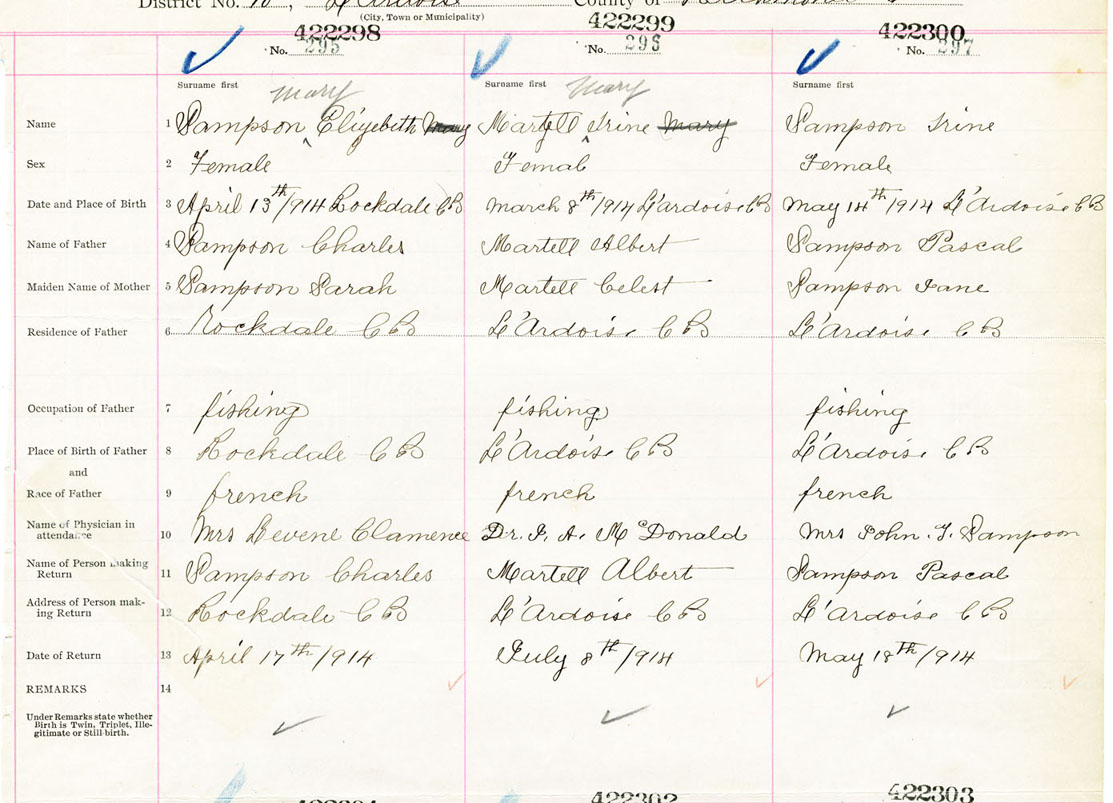 District No. 10, L'Ardoise County of Richmond
(City, Town or Municipality)
422298 422299 422300
No. 295 No. 296 No. 297
Surname first Surname first Surname first
mary mary
Name 1 Sampson Elizebith mary Martell Irine mary Sampson Irine
Sex 2 Female Femal Female
Date and Place of Birth 3 April 13th/1914 Rockdale CB march 8th/1914 L'ardoise CB may 14th/1914 L'Ardoise CB
Name of Father 4 Sampson Charles Martell Albert Sampson Pascal
Maiden Name of Mother 5 Sampson Sarah Martell Celest Sampson Jane
Residence of Father 6 Rockdale CB L'Ardoise CB L'Ardoise CB
Occupation of Father 7 fishing fishing fishing
Place of Birth of Father 8 Rockdale CB L'Ardoise CB L'Ardoise CB
and
Race of Father 9 french french french
Name of Physician in
attendance 10 Mrs Levene Clamence Dr. J. A. McDonald Mrs John. T. Sampson
Name of Person making
Return 11 Sampson Charles Martell Albert Sampson Pascal
Address of Person mak-
ing Return 12 Rockdale CB L'Ardoise CB L'Ardoise CB
Date of Return 13 April 17th/1914 July 8th/1914 May 18th/1914
REMARKS 14
Under Remarks state whether
Birth is Twin, Triplet, Ille-
gitimate or Still-birth.
422302 422303